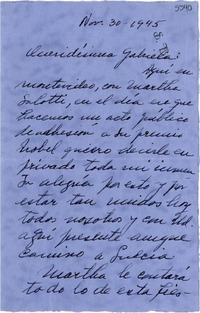 Nov. 30-1945
Queridísima Gabriela:
Aquí en
montevideo, con Martha
Salotti, en el día en que
hacemos un acto público
de adhesión a su premio
Nobel quiero decirle en
privado toda mi inmen
sa alegría por esto y por
estar tan unidos hoy
todos nosotros y con Ud.
aquí presente aunque
camino a Suecia
Martha le contará
todo lo de esta fies-